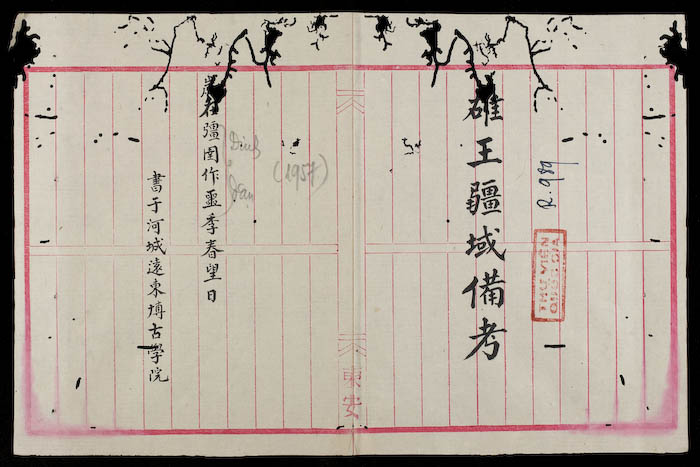 碓王疆域備考
R.989
THƯ VIỆN
QUỐC GIA
東安
歲在彊圉作噩季春望日
Đinh
Dậu
(1957)
書于河城遠東博古學院